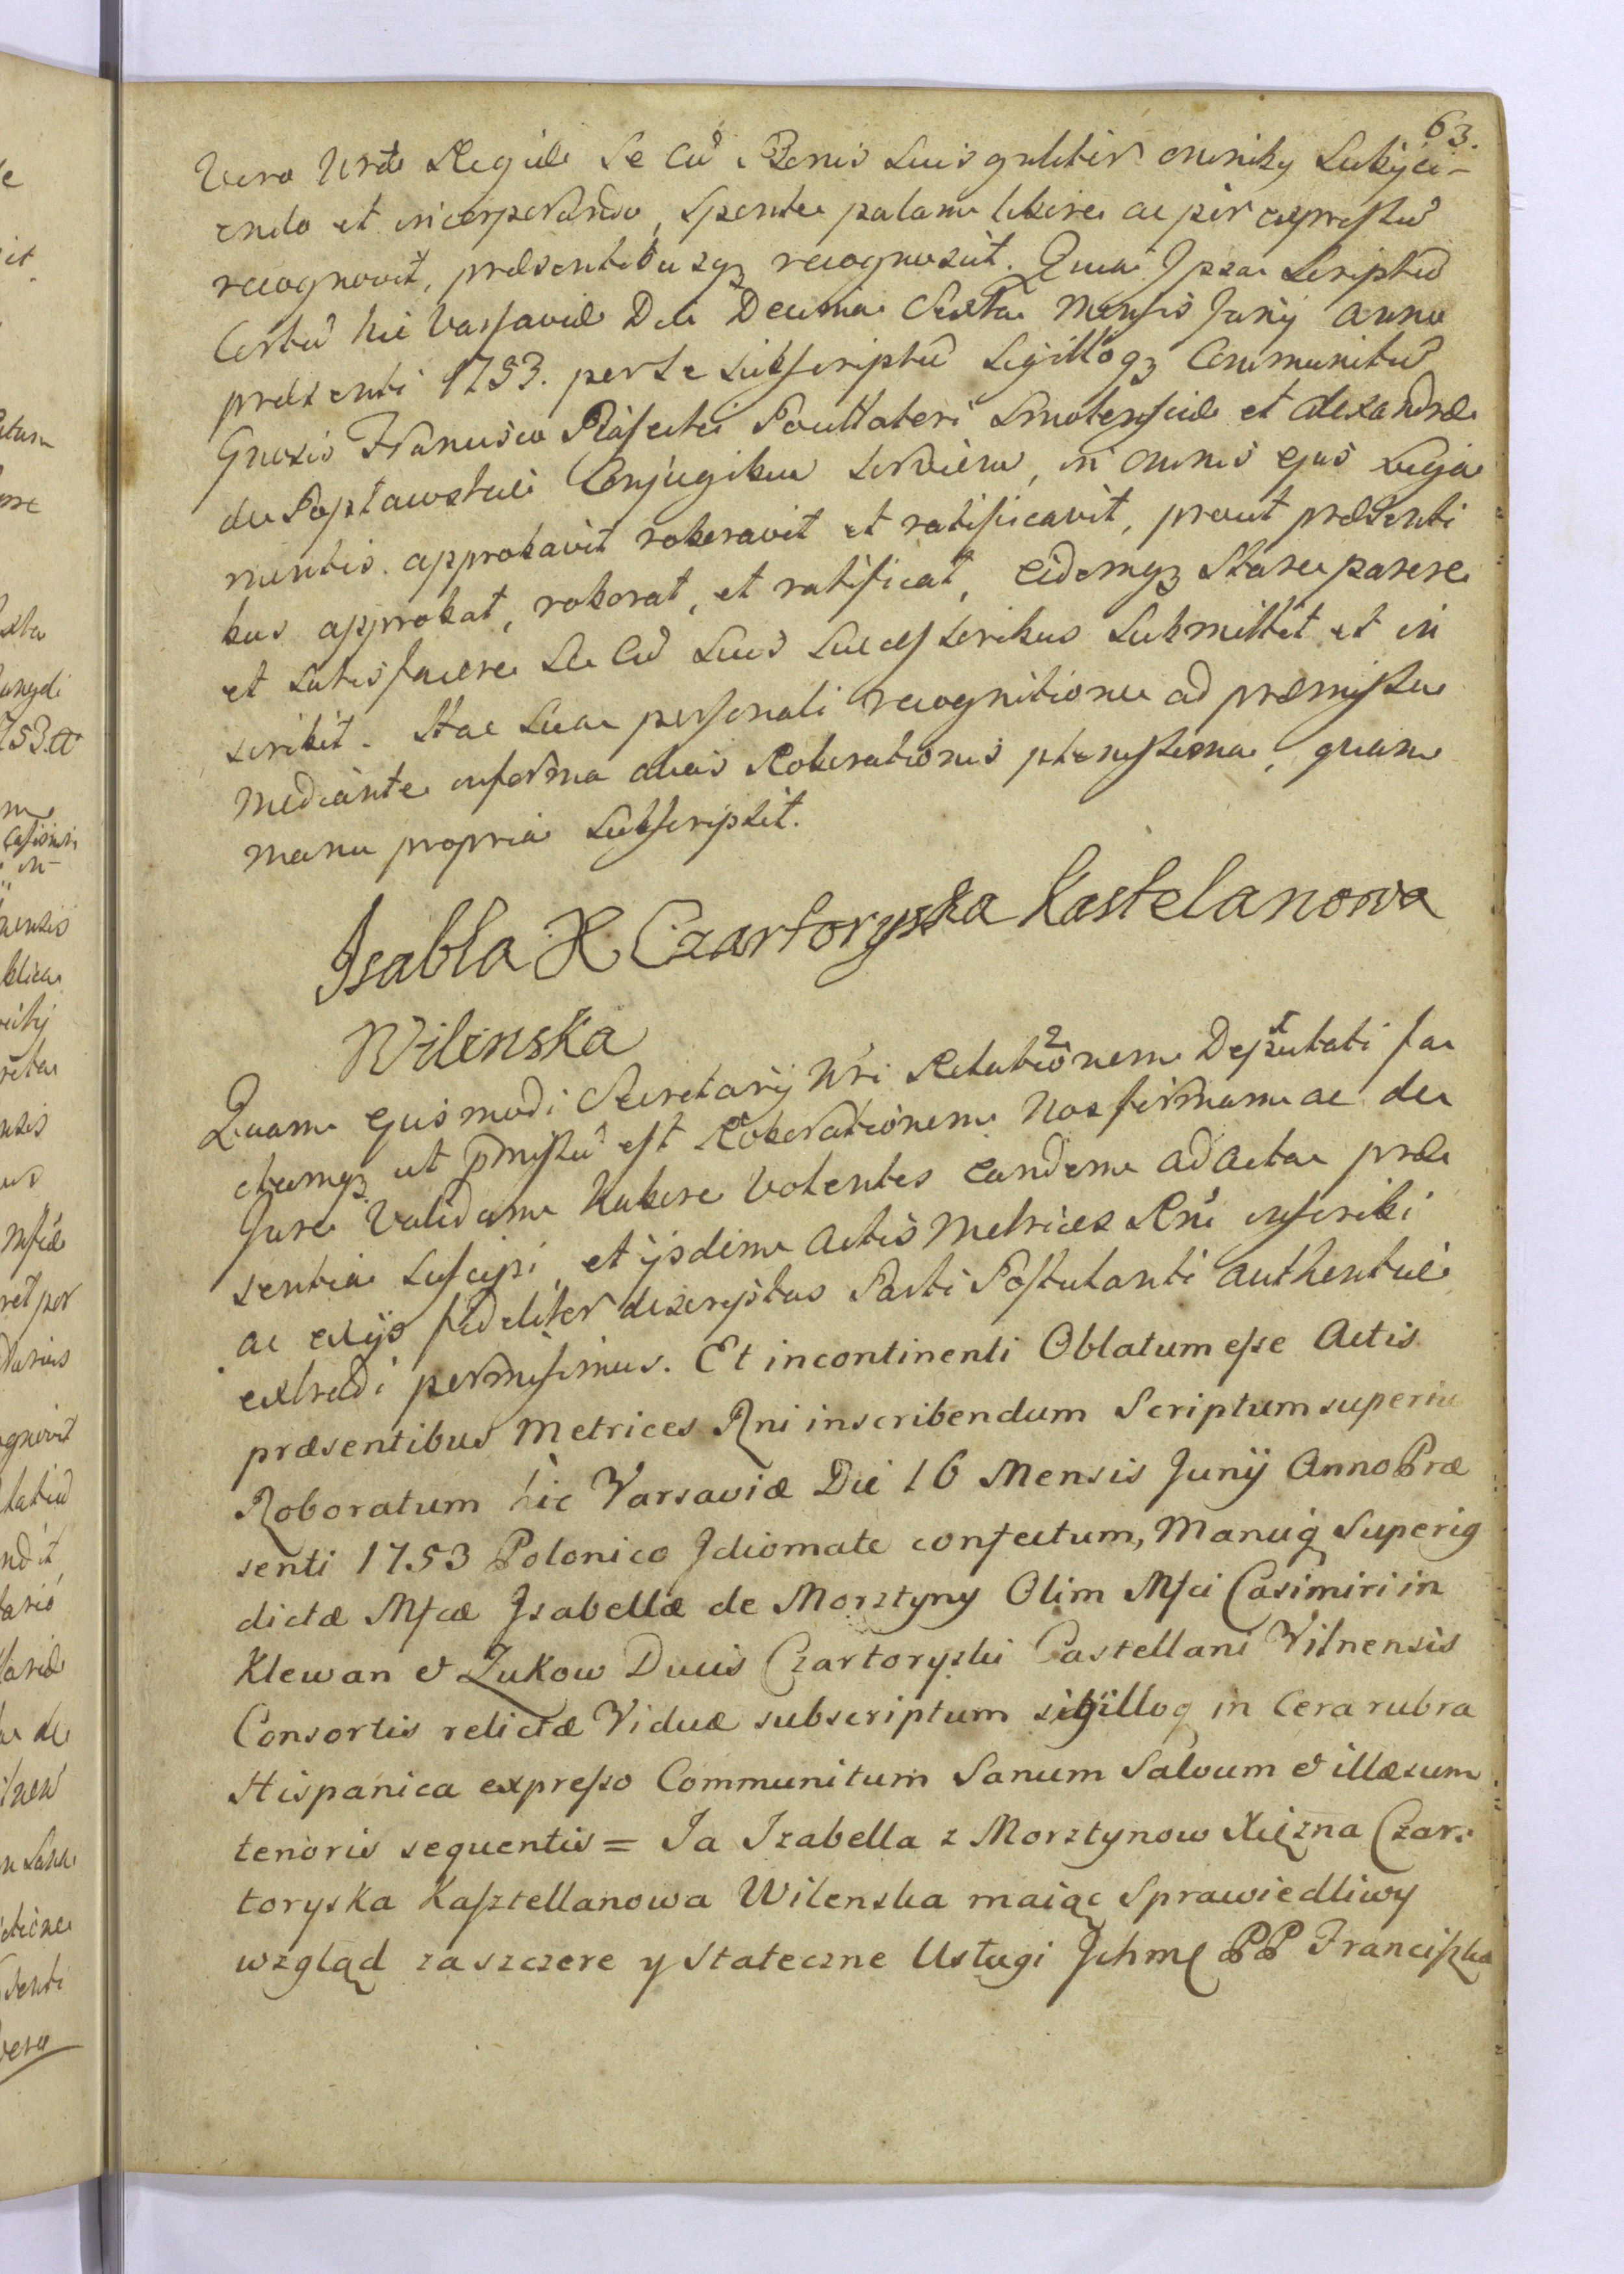 63.
Vero Nrtæ Regiæ Se Cũ Bonis Suis gnlitĕr omnibq Subijci-
endo et incorporando, sponte palam libere ac per expressũ
recognovit, præsentibusqʒ recognoscit. Quia Ipsa Scriptũ
Certũ hic Varsaviæ Die Decima Sexta Mensis Junij Anno
præsenti 1753. per Se Subscriptũ Sigilloqʒ Communitũ
Gnosis Francisco Poculatori Smolensciæ et Alexandræ
de Popławskie Conjugibus serviens, in omnis ejus Liga
mentis. approbavit roboravit et ratificavit, prout præsenti
bus approbat, roborat, et ratificat, eidemqʒ Stare parere
et satisfacere Se Cũ Suis Successoribus Submittit et in
scribit. Hac Sua personali recognitione ad præmissa
mediante in forma alias Roborationis plenissima, quam
manu propria Subscripsit.
Isabla X Czartoryska Kastelanowa
Wilenska
Quam ejusmodi Secretarij Nri Relationem Deputati fa
ctamqʒ ut pmissũ est Roborationem Nos firmam ac de
Jure Validam habere Volentes eandem ad Acta præ
sentia suscipi, et ijsdem Actis Metrices Rni inscribi
ac ex ijs fideliter descriptas Parti Postulanti authentice
extradi permisimus. Et incontinenti Oblatum eſse Actis
præsentibus Metrices Rni inscribendum Scriptum superiu
Roboratum hic Varsaviæ Die 16 Mensis Junij Anno Præ
senti 1753 Polonico Idiomate confectum, Manuq̨ Superiq
dictæ Mſcæ Isabellæ de Morztyny Olim Mſci Casimiri in
Klewan & Zukow Ducis Czartoryski Castellani Vilnensis
Consortis relictæ Viduæ subscriptum sigilloq in Cera rubra
Hispanica expreſso Communitum Sanum Salvum & illæsum
tenoris sequentis = Ja Izabella z Morztynow Xięzna Czar:
toryska Kaſztellanowa Wilenska maiąc Sprawiedliwy
wzgląd za szczere y Stateczne Usługi Jchmę PP Franciſzka